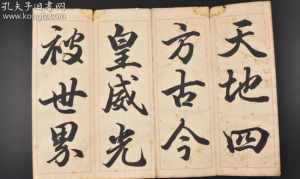 孔夫子旧书网
www.kongfz.com
天地四
方古今
皇威光
被世界